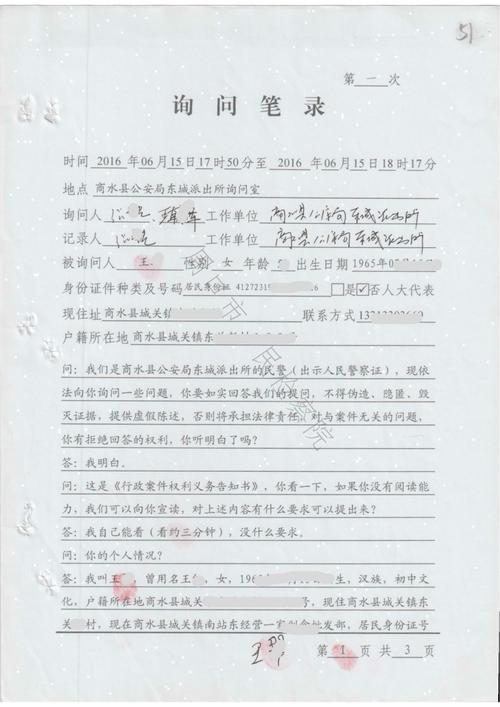 51
第一次
询问笔录
时间 2016 年 06 月 15 日 17 时 50 分至 2016 年 06 月 15 日 18 时 17 分
地点 商水县公安局东城派出所询问室
询问人 工作单位 商水县公安局东城派出所
记录人 工作单位 商水县公安局东城派出所
被询问人 王 性别 女 年龄 出生日期 1965年0
身份证件种类及号码 居民身份证 4127231 6 □是☑否人大代表
现住址 商水县城关镇 联系方式
户籍所在地 商水县城关镇东
问：我们是商水县公安局东城派出所的民警（出示人民警察证），现依
法向你询问一些问题，你要如实回答我们的提问，不得伪造、隐匿、毁
灭证据，提供虚假陈述，否则将承担法律责任，对与案件无关的问题，
你有拒绝回答的权利，你听明白了吗？
答：我明白。
问：这是《行政案件权利义务告知书》，你看一下，如果你没有阅读能
力，我们可以向你宣读，对上述内容有什么要求可以提出来？
答：我自己能看（看约三分钟），没什么要求。
问：你的个人情况？
答：我叫王 ，曾用名王 ，女，196 生，汉族，初中文
化，户籍所在地商水县城关 号，现住商水县城关镇东
关 村，现在商水县城关镇南站东经营一家 批发部，居民身份证号
第 1 页 共 3 页